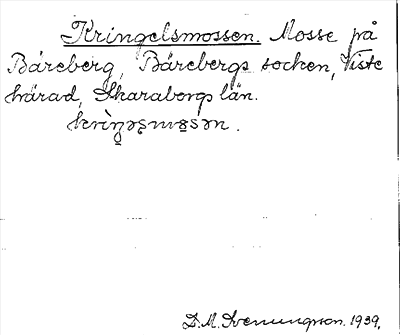 Kringelsmossen. Mosse på
Båreberg, Bårebergs socken, Viste
härad, Skaraborgs län.
D.M. Svenungsson. 1939.